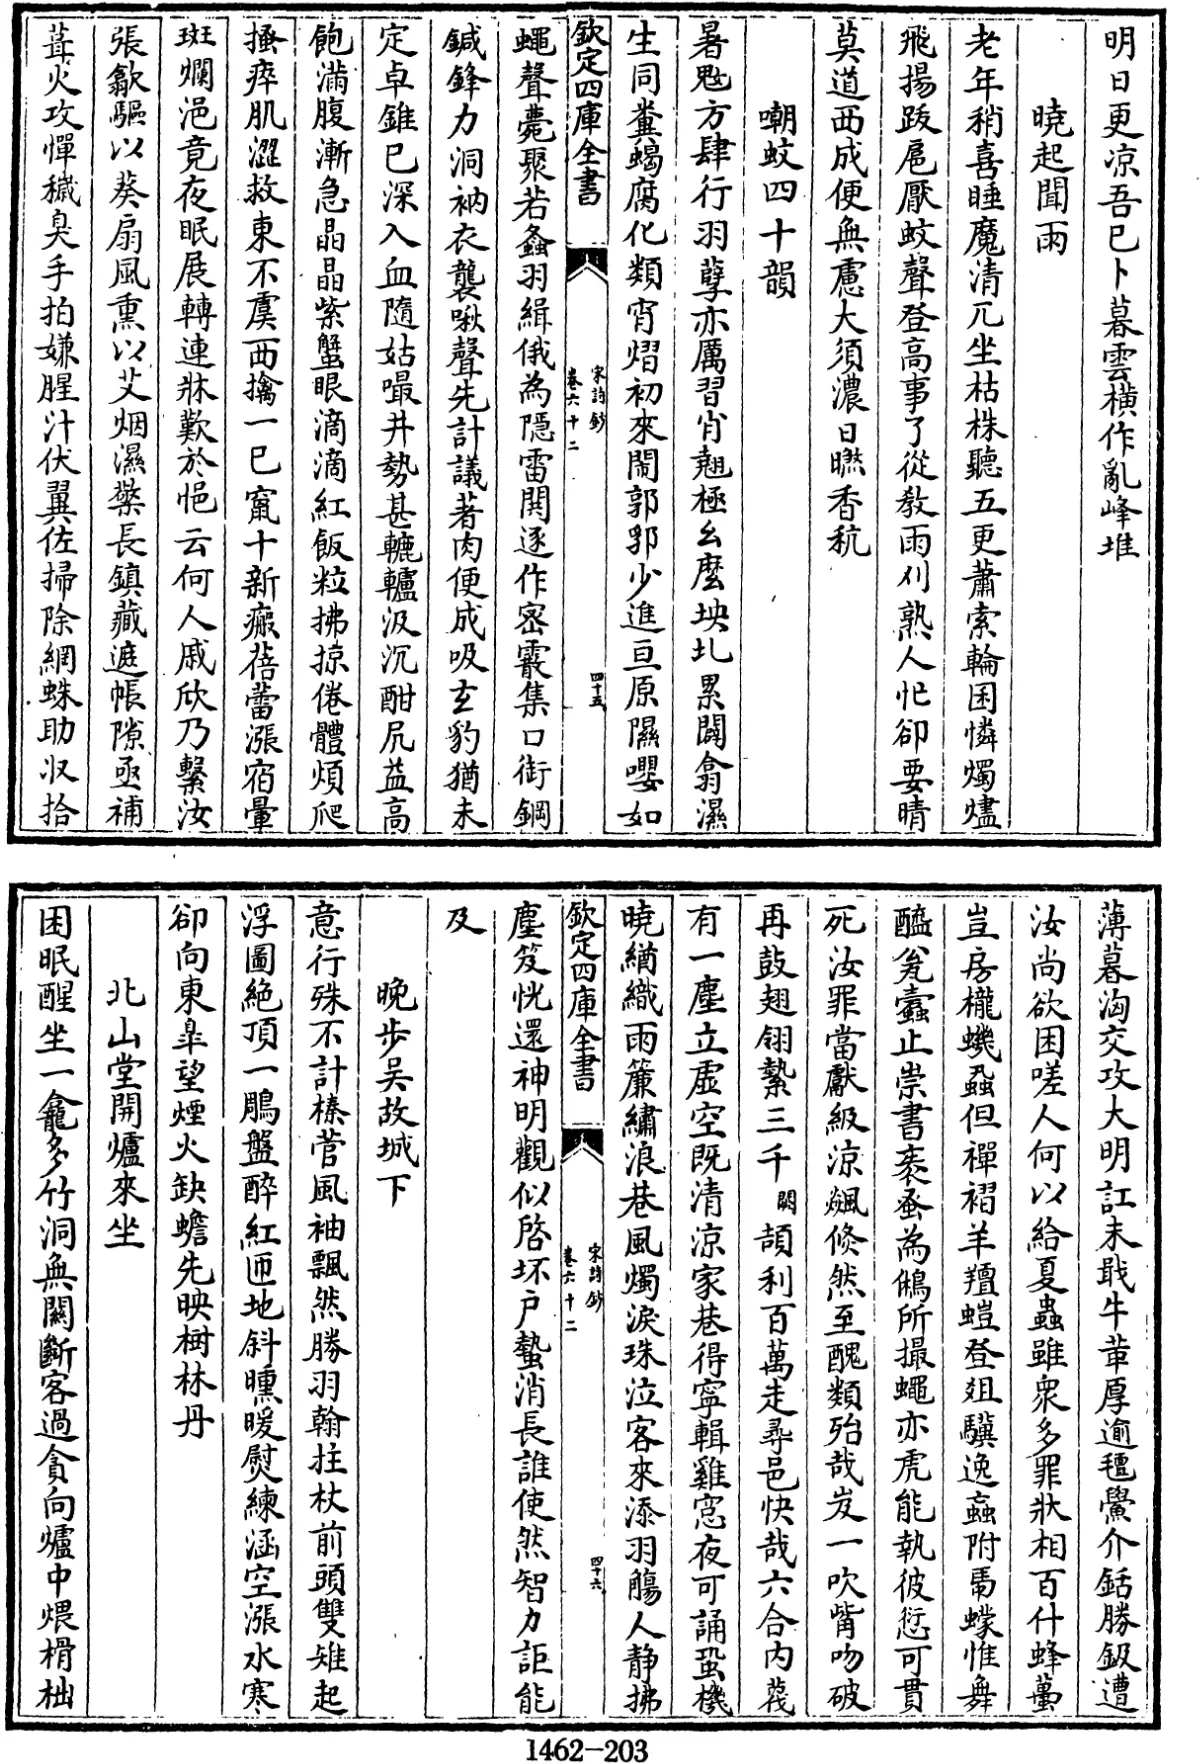 明日更凉吾已卜暮雲橫作亂峰堆
曉起聞雨
老年稍喜睡魔清兀坐枯株聽五更蕭索輪囷憐燭燼
飛揚跋扈厭蚊聲登高事了從教雨刈熟人忙卻要晴
莫道西成便無慮大須濃日曬香秔
嘲蚊四十韻
暑魃方肆行羽孽亦厲習肖翹極幺麼坱圠累闢翕濕
生同糞蝎腐化類宵熠初來鬧郭郛少進亘原隰嚶如
欽定四庫全書
宋詩鈔
卷六十二
四十五
蠅聲薨聚若螽羽緝俄為隱雷鬨逐作密霰集口銜鋼
鍼鋒力洞衲衣襲啾聲先計議著肉便成吸玄豹猶未
定卓錐已深入血隨姑嘬井勢甚轆轤汲沉酣尻益高
飽滿腹漸急晶晶紫蟹眼滴滴紅飯粒拂掠倦體煩爬
搔瘁肌澀救東不虞西擒一已竄十新瘢蓓蕾漲宿暈
斑斕浥竟夜眠展轉連牀歎於悒云何人戚欣乃繫汝
張歙驅以葵扇風熏以艾烟濕櫱長鎮藏遮帳隙亟補
葺火攻憚穢臭手拍嫌腥汁伏翼佐掃除網蛛助收拾
薄暮洶交攻大明訌未戢牛葷厚逾氊鱟介銛勝鈒遭
汝尚欲困嗟人何以給夏蟲雖衆多罪狀相百什蜂蠆
豈房櫳蟣蝨但襌褶羊羶螘登俎驥逸蝱附馬蠓惟舞
醯瓮蠹止祟書袠蚤為鵂所撮蠅亦虎能執彼愆可貫
死汝罪當獻級凉颷倏然至醜類殆哉岌一吹觜吻破
再鼓翅翎縶三千闕頡利百萬走尋邑快哉六合内蔑
有一塵立虛空既清凉家巷得寧輯雞窻夜可誦蛩機
曉緧織雨簾繡浪巷風燭淚珠泣客來添羽觴人靜拂
欽定四庫全書
宋詩鈔
卷六十二
四十六
塵笈恍還神明觀似啓坏戶蟄消長誰使然智力詎能
及
晚步吳故城下
意行殊不計榛菅風袖飄然勝羽翰拄杖前頭雙雉起
浮圖絶頂一鵰盤醉紅匝地斜曛暖熨練涵空漲水寒
卻向東臯望煙火缺蟾先映樹林丹
北山堂開爐來坐
困眠醒坐一龕多竹洞無關斷客過貪向爐中煨榾柮
1462—203